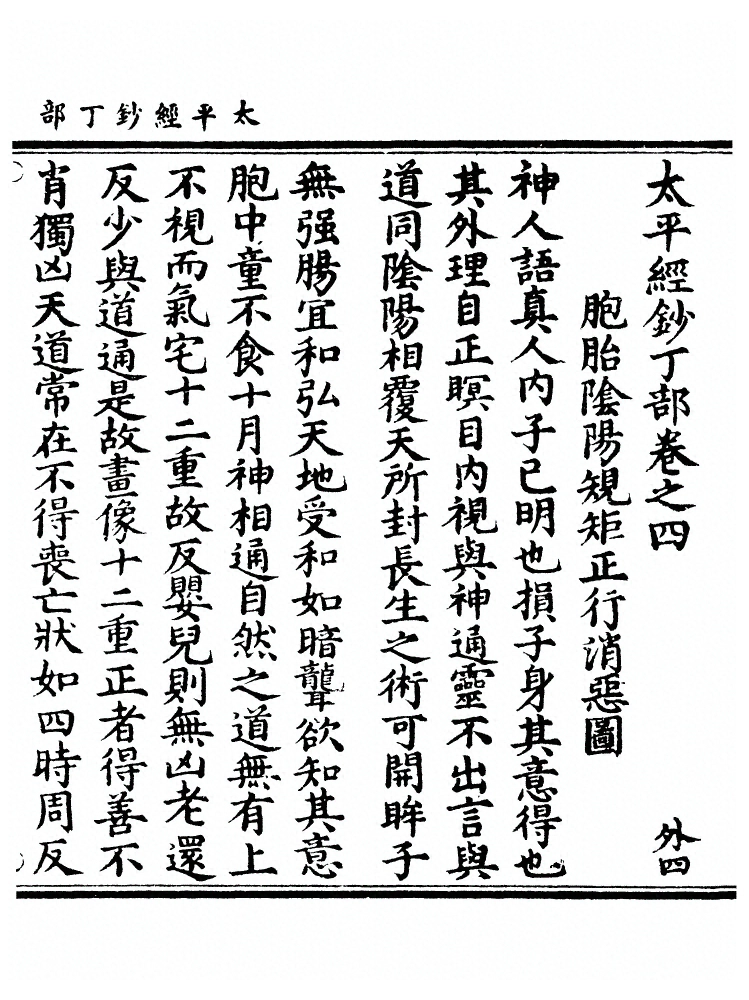 太平經鈔丁部
太平經鈔丁部卷之四
外四
胞胎陰陽規矩正行消惡圖
神人語真人內子已明也損子身其意得也
其外理自正瞑目內視與神通靈不出言與
道同陰陽相覆天所封長生之術可開眸子
無强腸宜和弘天地受和如暗聾欲知其意
胞中童不食十月神相通自然之道無有上
不視而氣宅十二重故反嬰兒則無凶老還
反少與道通是故畫像十二重正者得善不
肖獨凶天道常在不得喪亡狀如四時周反